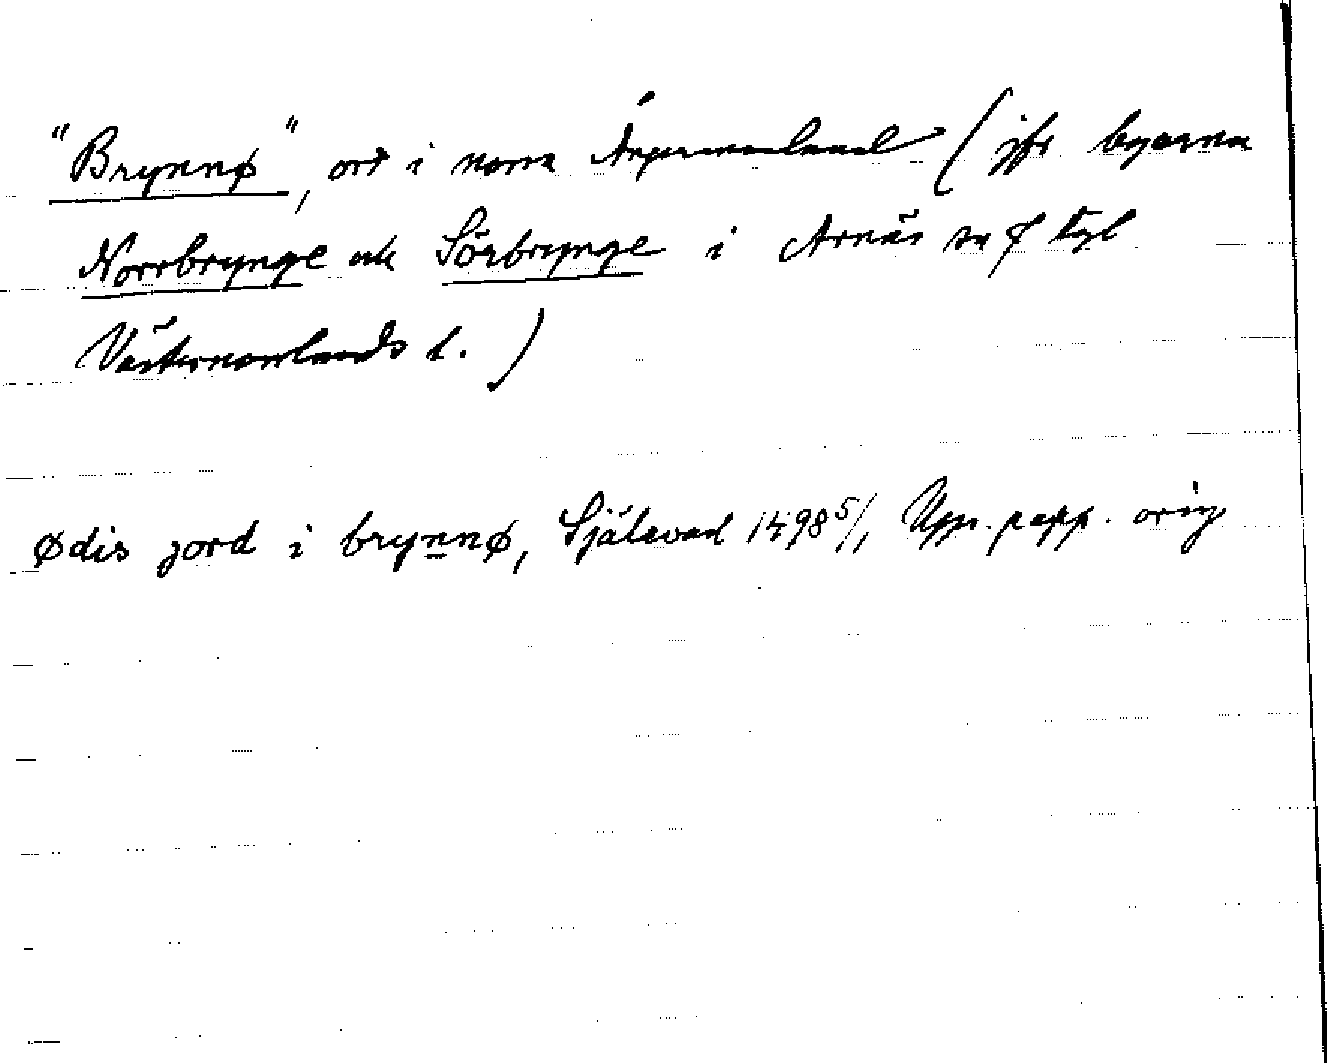 "Brynnø", ort i norra Ångermanland (jfr byarna
Norrbrynge och Sörbrynge i Arnäs sn f
Västernorrlands l.)
Ødis jord i brynnø, Själevad 1498 5/1 Upps. papp. orig